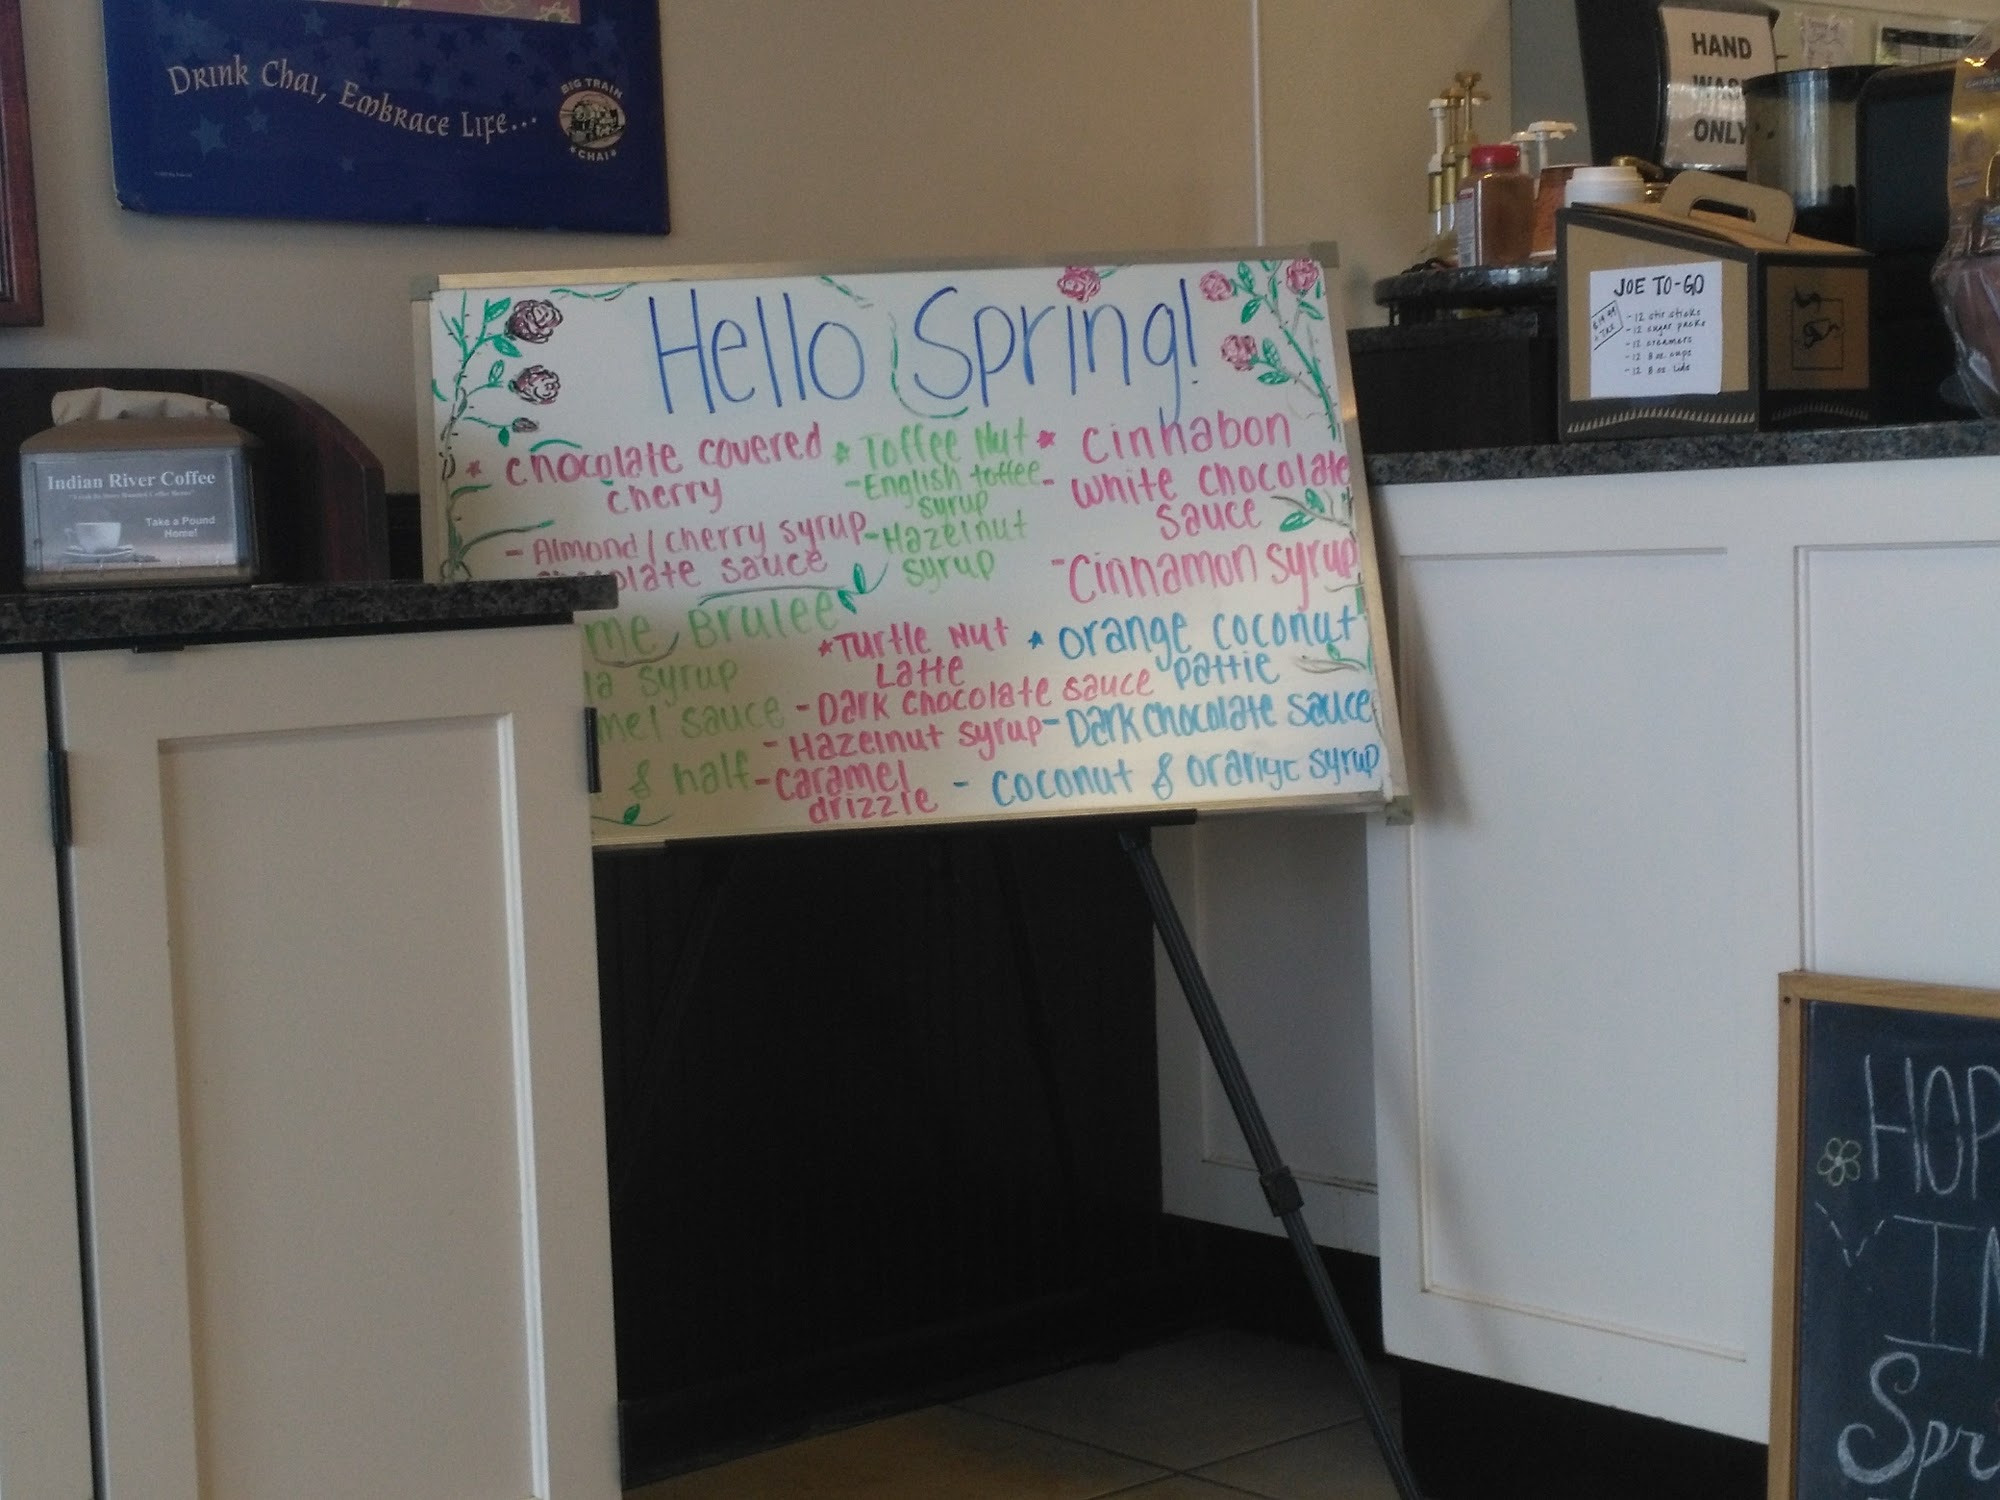 Drink Chai, Embrace Life...
BIG TRAIN
CHAI
HAND
WASH
ONLY
JOE TO-GO
- 12 stir sticks
- 12 sugar packs
- 12 creamers
- 12 8 oz. cups
- 12 8 oz. lids
Indian River Coffee
Take a Pound
Home!
Hello Spring!
* Chocolate covered
cherry
- Almond/cherry syrup
sauce
me Brulee
syrup
mel sauce
& half
* Toffee Nut
- English toffee
syrup
- Hazelnut
syrup
* Turtle Nut
Latte
- Dark chocolate sauce
- Hazelnut syrup
- caramel
drizzle
* Cinnabon
- White chocolate
sauce
- Cinnamon syrup
* orange coconut
pattie
- Dark chocolate sauce
- coconut & orange syrup
HOP
IN
Spr